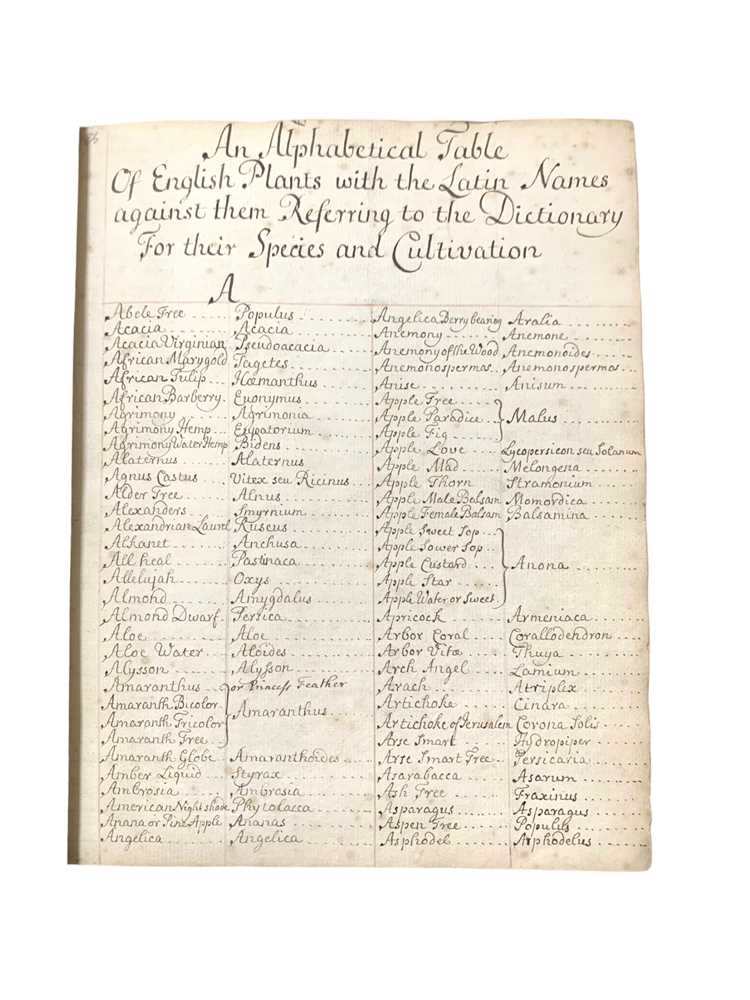 An Alphabetical Table
Of English Plants with the Latin Names
against them Referring to the Dictionary
For their Species and Cultivation
A
Abele Tree .... Populus
Acacia .... Acacia
Acacia Virginian Pseudoacacia
African Marygold Tagetes
African Tulip .... Hæmanthus
African Barberry .... Euonymus
Agrimony .... Agrimonia
Agrimony Hemp .... Eupatorium
Agrimony Water Hemp Bidens
Alaternus .... Alaternus
Agnus Castus .... Vitex seu Ricinus
Alder Tree .... Alnus
Alexanders .... Smyrnium
Alexandrian Laurel Ruscus
Alkanet .... Anchusa
All heal .... Pastinaca
Allelujah .... Oxys
Almond .... Amygdalus
Almond Dwarf .... Persica
Aloe .... Aloe
Aloe Water .... Aloides
Alysson .... Alysson
Amaranthus .... or Princess Feather
Amaranth Bicolor
Amaranth Tricolor
Amaranth Tree .... Amaranthus
Amaranth Globe .... Amaranthoides
Amber Liquid .... Styrax
Ambrosia .... Ambrosia
American Night shade Phytolacca
Anana or Pine Apple Ananas
Angelica .... Angelica
Angelica Berry bearing Aralia
Anemony .... Anemone
Anemony of the Wood Anemonoides
Anemonospermas .... Anemonospermas
Anise .... Anisum
Apple Tree
Apple Paradice .... Malus
Apple Fig
Apple Love .... Lycopersicon seu Solanum
Apple Mad .... Melongena
Apple Thorn .... Stramonium
Apple Male Balsam Momordica
Apple Female Balsam Balsamina
Apple Sweet Sop
Apple Sower Sop
Apple Custard .... Anona
Apple Star
Apple Water or Sweet
Apricock .... Armeniaca
Arbor Coral .... Corallodendron
Arbor Vitæ .... Thuya
Arch Angel .... Lamium
Arach .... Atriplex
Artichoke .... Cinara
Artichoke of Jerusalem Corona Solis
Arse Smart .... Hydropiper
Arse Smart Tree .... Persicaria
Asarabacca .... Asarum
Ash Tree .... Fraxinus
Asparagus .... Asparagus
Aspen Tree .... Populus
Asphodel .... Asphodelus